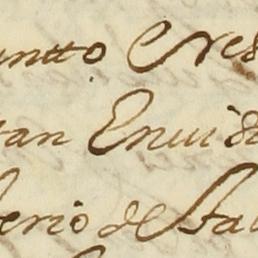 untto Cres
tan Enui
erio de sta